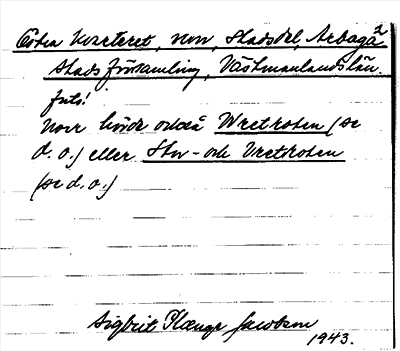 Östra kvarteret, norr, Stadsdel, Arboga 2
stads församling, Västmanlands län.
forts!
Norr hörde också Wretkoten (se
d. o.) eller Stor- och Vretkoten
(se d. o.)
Sigbrit Plænge Jacobson
1943.